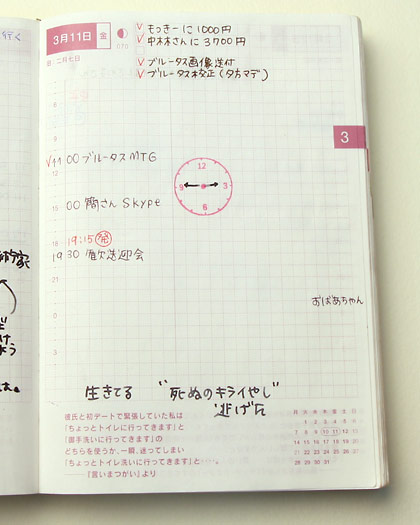 行く
3月11日 金
070
旧 二月七日
√ もっきーに1000円
√ 中林さんに3700円
√ ブルータス画像送付
√ ブルータス校正(夕方マデ)
3
√11 00 ブルータスMTG
12
12
3
6
9
15 00 簡さん Skype
18 19:15 発
19 30 歓送迎会
おばあちゃん
生きてる "死ぬのキライやし"
逃げ
彼氏と初デートで緊張していた私は
「ちょっとトイレに行ってきます」と
「御手洗いに行ってきます」の
どちらを使うか、一瞬、迷ってしまい
「ちょっとトイレ洗いに行ってきます」と……。
——『言いまつがい』より
月 火 水 木 金 土 日
1 2 3 4 5 6
7 8 9 10 11 12 13
14 15 16 17 18 19 20
21 22 23 24 25 26 27
28 29 30 31